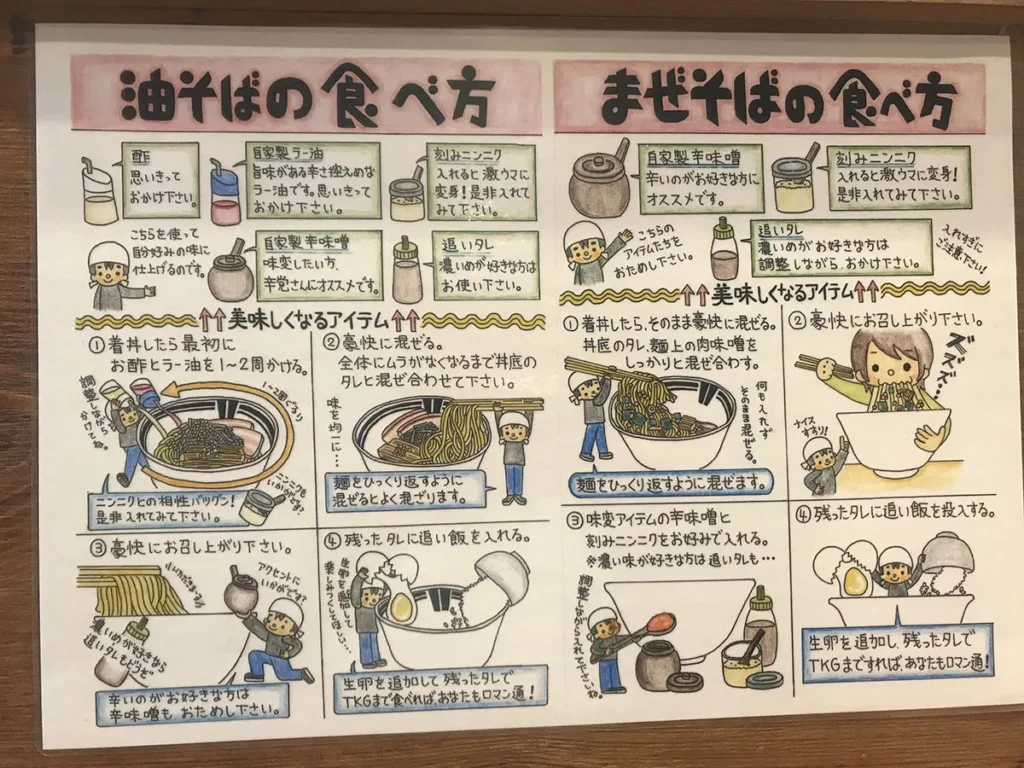 油そばの食べ方
酢
思いきって
おかけ下さい。
自家製ラー油
旨味がある辛さ控えめな
ラー油です。思いきって
おかけ下さい。
刻みニンニク
入れると激ウマに
変身!是非入れて
みて下さい。
こちらを使って
自分好みの味に
仕上げるのです。
自家製辛味噌
味変したい方、
辛党さんにオススメです。
追いタレ
濃いめが好きな方は
お使い下さい。
↑↑美味しくなるアイテム↑↑
①着丼したら最初に
お酢とラー油を1~2周かける。
調整しながら
かけてね。
1~2周ぐるり
ニンニクも
いかがです?
ニンニクとの相性バツグン!
是非入れてみて下さい。
②豪快に混ぜる。
全体にムラがなくなるまで丼底の
タレと混ぜ合わせて下さい。
味を均一に…
麺をひっくり返すように
混ぜるとよく混ざります。
③豪快にお召し上がり下さい。
いただきまーす
アクセントに
いかがです?
濃いめが好きなら
追いタレもどうぞ
辛いのがお好きな方は
辛味噌も おためし下さい。
④残ったタレに追い飯を入れる。
生卵を追加して
楽しみつくして欲しい…
生卵を追加して残ったタレで
TKGまで食べれば、あなたもロマン通!
まぜそばの食べ方
自家製辛味噌
辛いのがお好きな方に
オススメです。
刻みニンニク
入れると激ウマに変身!
是非入れてみて下さい。
こちらの
アイテムたちを
おためし下さい。
追いタレ
濃いめがお好きな方は
調整しながら、おかけ下さい。
入れすぎに
ご注意下さい!
↑↑美味しくなるアイテム↑↑
①着丼したら、そのまま豪快に混ぜる。
丼底のタレ、麺上の肉味噌を
しっかりと混ぜ合わす。
何も入れず
そのまま混ぜる。
麺をひっくり返すように混ぜます。
②豪快にお召し上がり下さい。
ズズズ…
ナイス
すすり!
③味変アイテムの辛味噌と
刻みニンニクをお好みで入れる。
※濃い味が好きな方は追いタレも…
調整しながら入れて下さいね
④残ったタレに追い飯を投入する。
生卵を追加し、残ったタレで
TKGまですれば、あなたもロマン通!